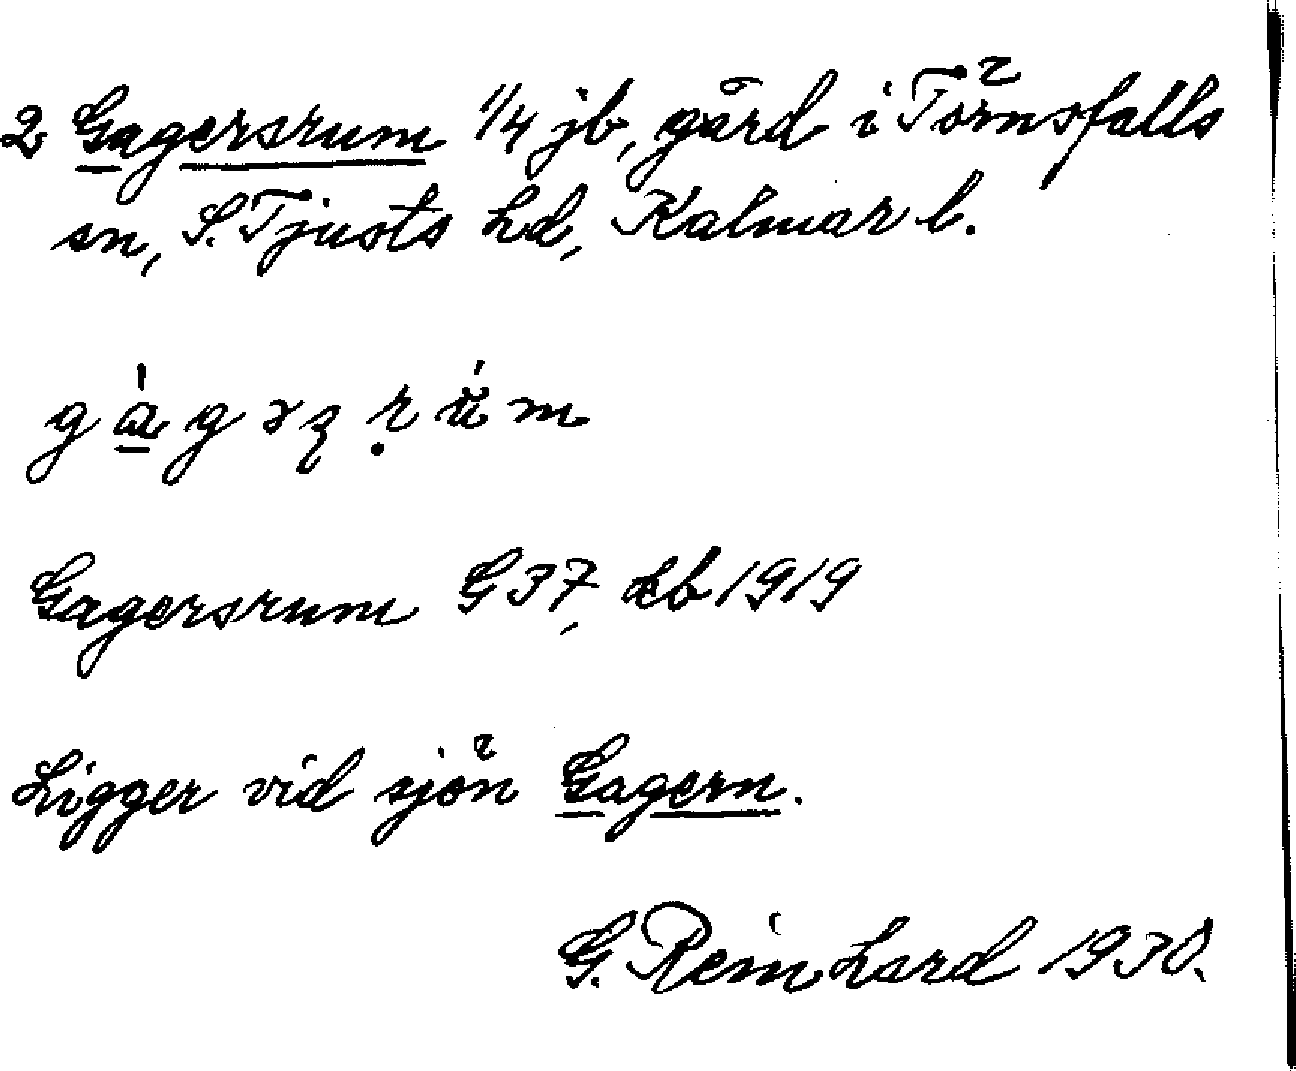 2 Gagersrum 1/4 jb, gård i Törnsfalls
sn, S. Tjusts hd, Kalmar l.
Gagersrum G 37, Eb 1919
Ligger vid sjön Gagern.
G. Reinhard 1930.